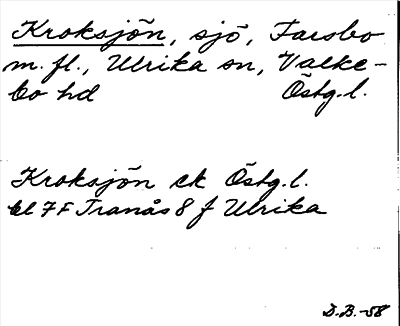 Kroksjön, sjö, Farsbo
m. fl., Ulrika sn, Valke-
bo hd Östg. l.
Kroksjön ek Östg. l.
bl 7F Tranås 8 f Ulrika
D.B.-58